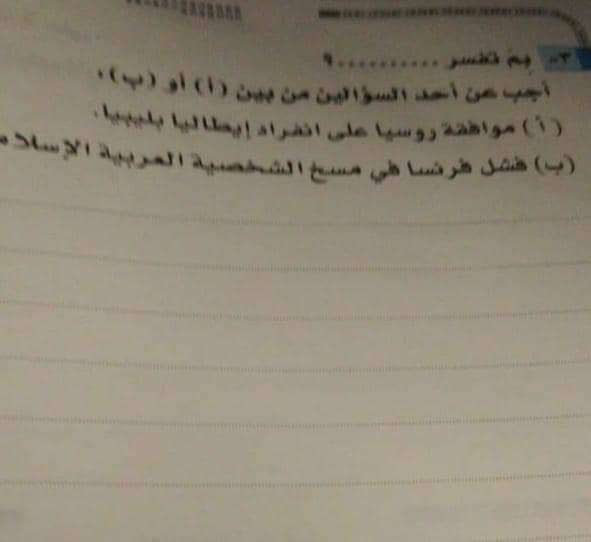 ٣- بم تفسر ..........؟
أجب عن أحد السؤالين من بين (أ) أو (ب):
(أ) موافقة روسيا على انفراد إيطاليا بليبيا.
(ب) فشل فرنسا في مسخ الشخصية العربية